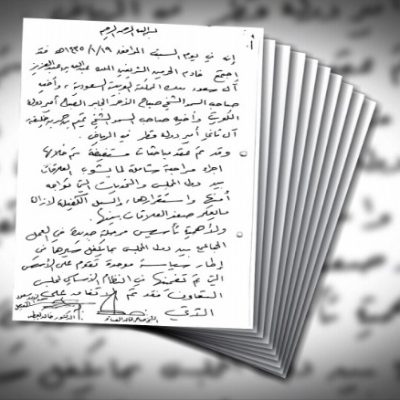 بسم الله الرحمن الرحيم
إنه في يوم السبت الموافق ١٤٣٥/١/١٩هـ فقد
اجتمع خادم الحرمين الشريفين الملك عبدالله بن عبدالعزيز
آل سعود ملك المملكة العربية السعودية، وأخيه
صاحب السمو الشيخ صباح الأحمد الجابر الصباح أمير دولة
الكويت وأخيه صاحب السمو الشيخ تميم بن حمد بن خليفة
آل ثاني أمير دولة قطر في الرياض.
وقد تم عقد مباحثات مستفيضة تم خلالها
إجراء مراجعة شاملة لما يشوب العلاقات
بين دول المجلس والتحديات التي تواجه
أمنها واستقرارها، والسبل الكفيلة لإزالة
ما يعكر صفو العلاقات بينها.
ولأهمية تأسيس مرحلة جديدة في العمل
الجماعي بين دول المجلس بما يكفل سيرها في
إطار سياسة موحدة تقوم على الأسس
التي تم تضمينها في النظام الأساسي لمجلس
التعاون فقد تم